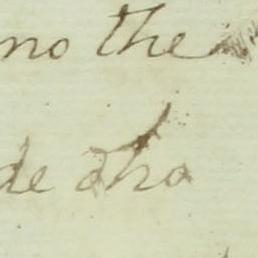 no the
de dho